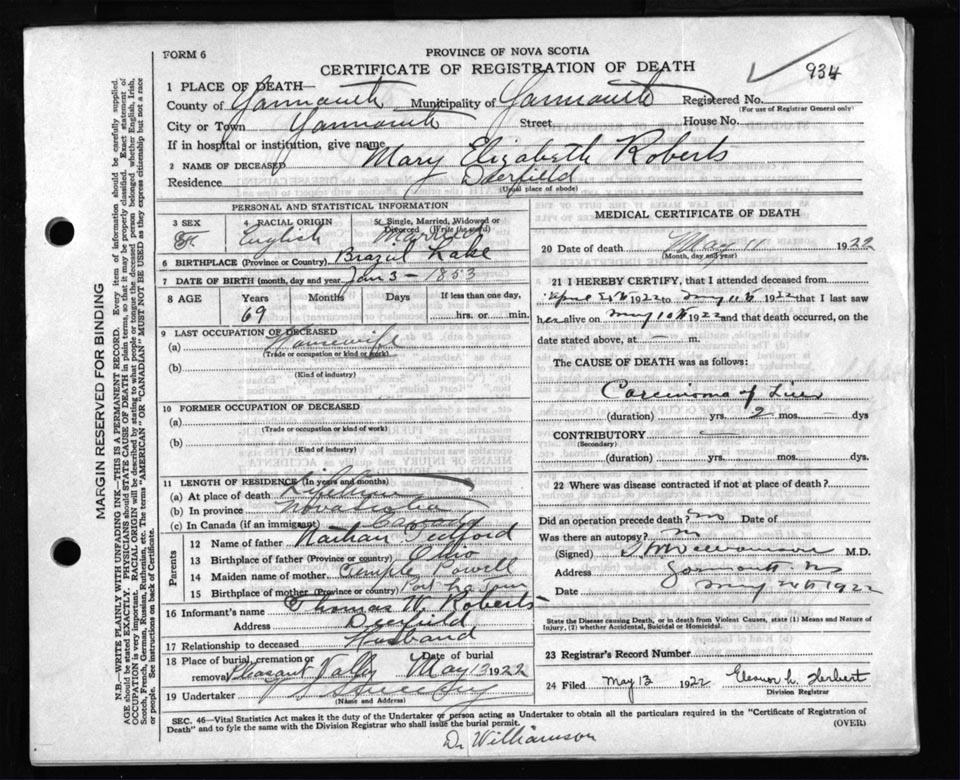 FORM 6
PROVINCE OF NOVA SCOTIA
CERTIFICATE OF REGISTRATION OF DEATH
934
1 PLACE OF DEATH—
County of Yarmouth Municipality of Yarmouth Registered No.
(For use of Registrar General only)
City or Town Yarmouth Street House No.
If in hospital or institution, give name
2 NAME OF DECEASED Mary Elizabeth Roberts
Residence Deerfield
(Usual place of abode)
PERSONAL AND STATISTICAL INFORMATION
3 SEX 4 RACIAL ORIGIN 5 Single, Married, Widowed or Divorced (Write the word)
F. English Married
6 BIRTHPLACE (Province or Country) Brazil Lake
7 DATE OF BIRTH (month, day and year) Jan 3 - 1853
8 AGE Years Months Days If less than one day,
69 hrs. or min.
9 LAST OCCUPATION OF DECEASED
(a) Housewife
(Trade or occupation or kind of work)
(b)
(Kind of industry)
10 FORMER OCCUPATION OF DECEASED
(a)
(Trade or occupation or kind of work)
(b)
(Kind of industry)
11 LENGTH OF RESIDENCE (In years and months)
(a) At place of death Lifetime
(b) In province Nova Scotia
(c) In Canada (if an immigrant) Canada
Parents
12 Name of father Nathan Tedford
13 Birthplace of father (Province or country) Ohio
14 Maiden name of mother Temple Powell
15 Birthplace of mother (Province or country)
16 Informant's name Thomas W. Roberts
Address Deerfield
17 Relationship to deceased Husband
18 Place of burial, cremation or removal Date of burial
Pleasant Valley May 13 1922
19 Undertaker
(Name and Address)
MEDICAL CERTIFICATE OF DEATH
20 Date of death May 11 1922
(Month, day and year)
21 I HEREBY CERTIFY, that I attended deceased from
April 1922 to May 11th 1922 that I last saw
her alive on May 10th 1922 and that death occurred, on the
date stated above, at — m.
The CAUSE OF DEATH was as follows:
Carcinoma of Liver
(duration) yrs. 2 mos. dys
CONTRIBUTORY
(Secondary)
(duration) yrs. mos. dys.
22 Where was disease contracted if not at place of death?
Did an operation precede death? No Date of
Was there an autopsy? No
(Signed) Williamson M.D.
Address Yarmouth NS
Date May 1922
State the Disease causing Death, or in death from Violent Causes, state (1) Means and Nature of
Injury, (2) whether Accidental, Suicidal or Homicidal.
23 Registrar's Record Number
24 Filed May 13 1922 Eleanor L. Herbert
Division Registrar
SEC. 46—Vital Statistics Act makes it the duty of the Undertaker or person acting as Undertaker to obtain all the particulars required in the "Certificate of Registration of
Death" and to fyle the same with the Division Registrar who shall issue the burial permit. (OVER)
Dr Williamson
MARGIN RESERVED FOR BINDING
N.B.—WRITE PLAINLY WITH UNFADING INK—THIS IS A PERMANENT RECORD. Every item of information should be carefully supplied.
AGE should be stated EXACTLY. PHYSICIANS should STATE CAUSE OF DEATH in plain terms, so that it may be properly classified. Exact statement of
OCCUPATION is very important. RACIAL ORIGIN will be described by stating to what people or tongue the deceased person belonged whether English, Irish,
Scotch, French, German, Russian, Ruthenian, etc. The terms "AMERICAN" OR "CANADIAN" MUST NOT BE USED as they express citizenship but not a race
or people. See instructions on back of Certificate.